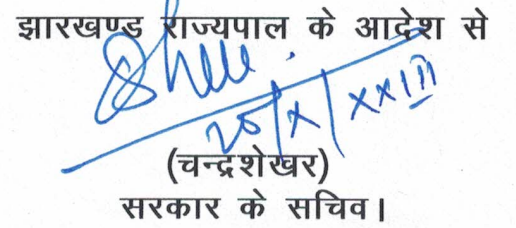 झारखण्ड राज्यपाल के आदेश से
20/X/XXIII
(चन्द्रशेखर)
सरकार के सचिव।